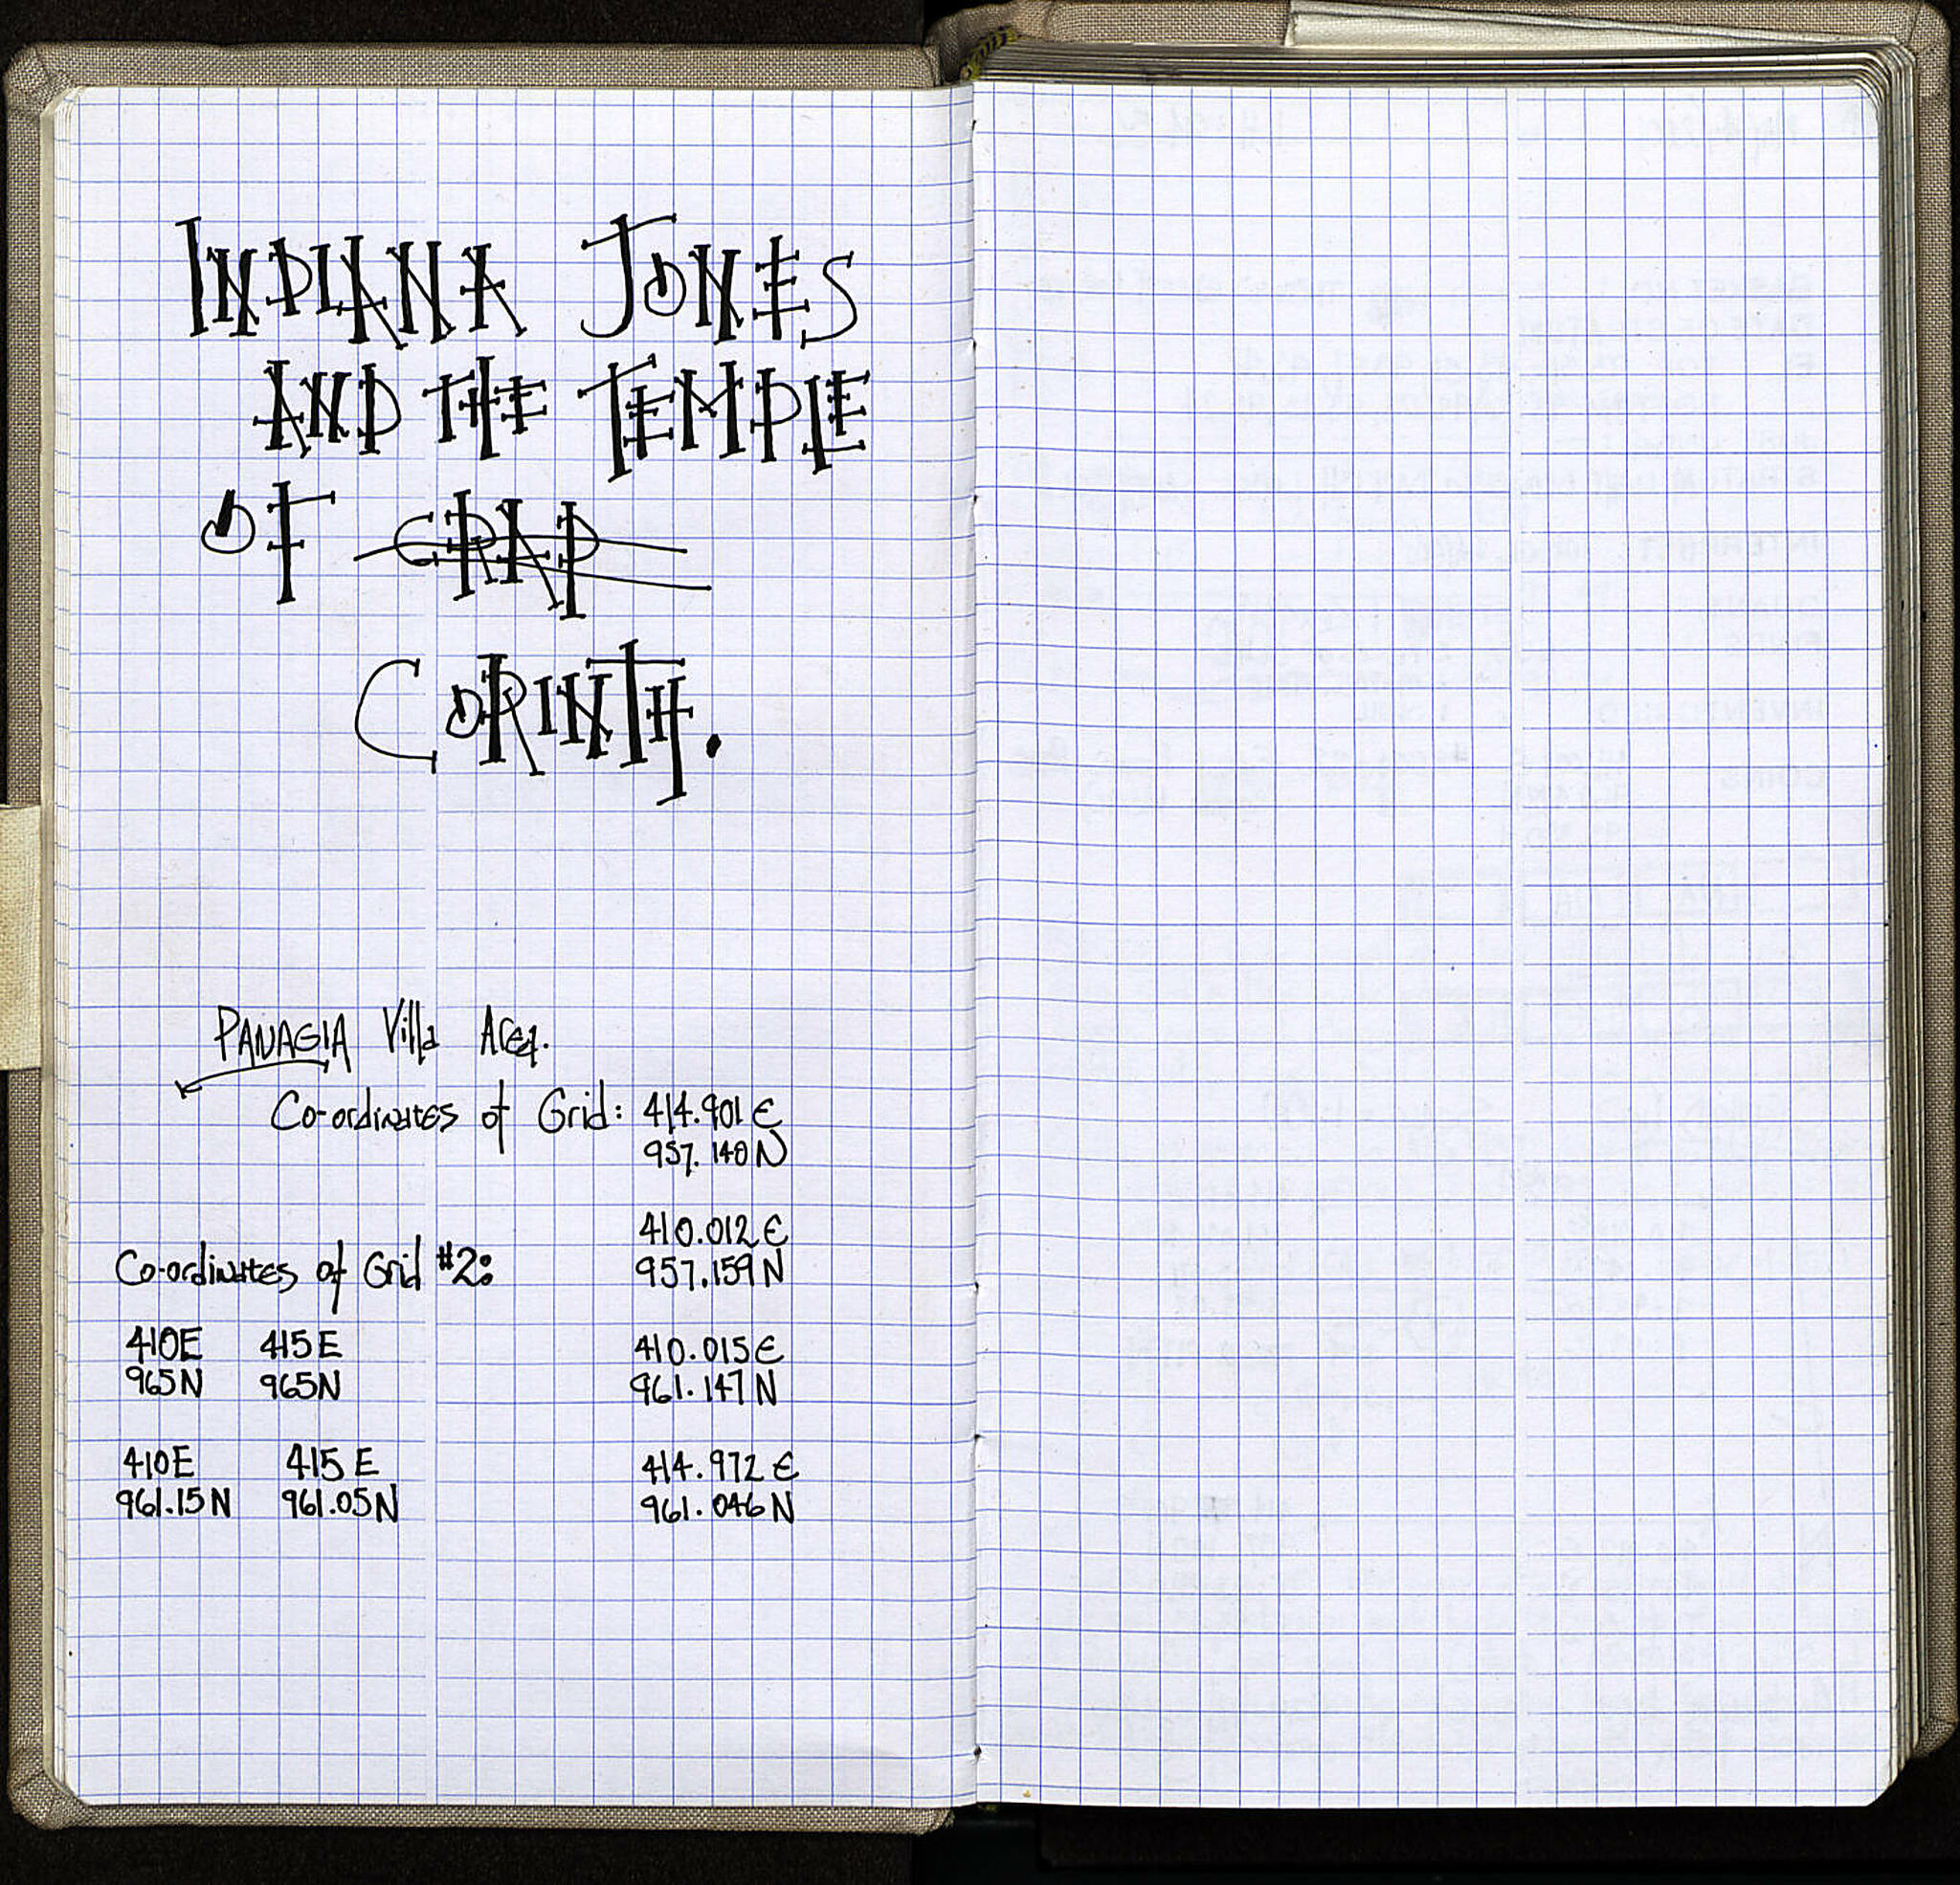 INDIANA JONES
AND THE TEMPLE
OF CRAP
CORINTH.
PANAGIA Villa Area.
Co-ordinates of Grid: 414.901 E
957.140 N
410.012 E
957.159 N
Co-ordinates of Grid #2:
410E 415E
965N 965N
410.015 E
961.147 N
410E 415 E
961.15N 961.05N
414.972 E
961.046 N